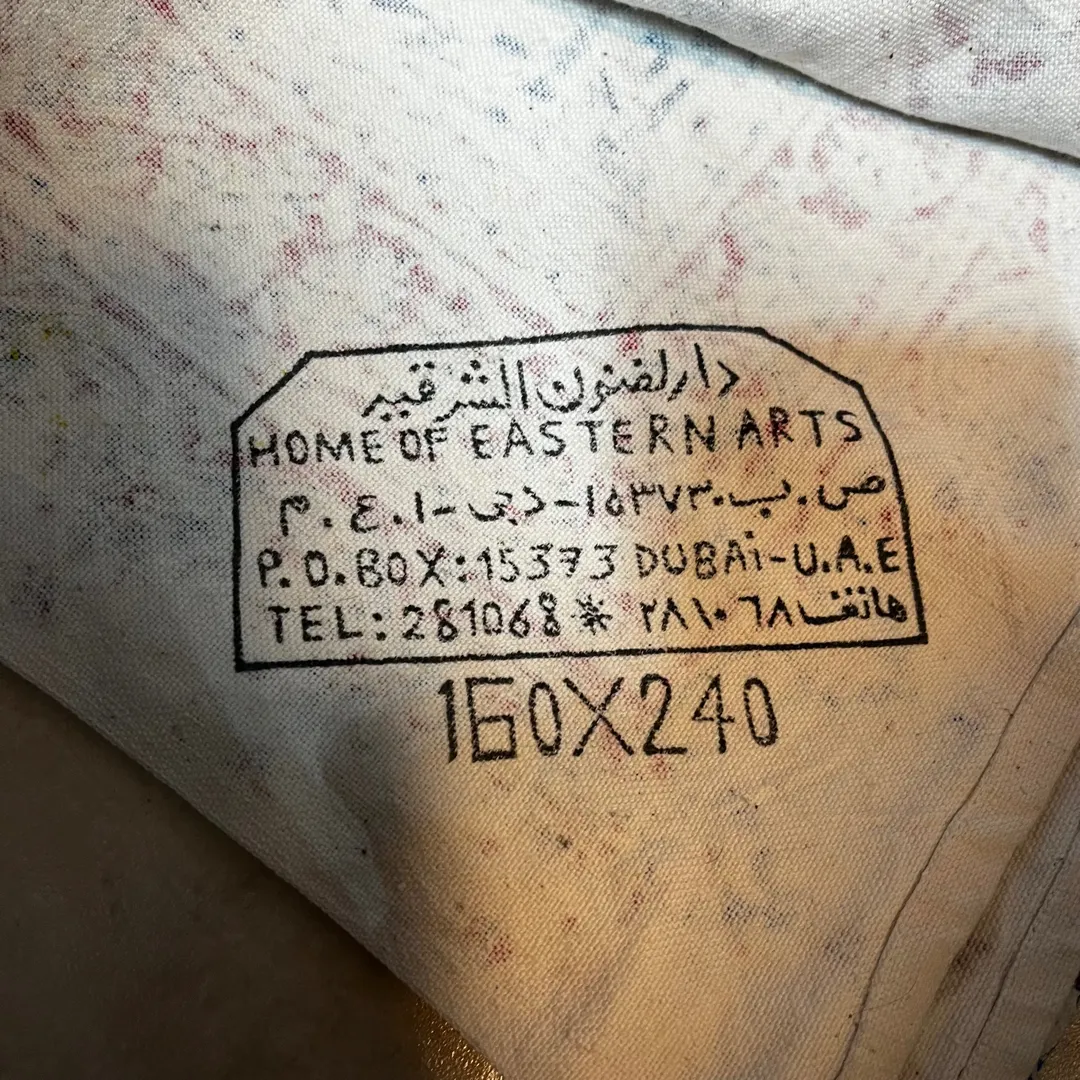 دار لضنون الشرقيير
HOME OF EASTERN ARTS
ص.ب.١٥٣٧٣-دبى-ا.ع.م
P.O.BOX:15373 DUBAi-U.A.E
TEL:281068* ٢٨١٠٦٨هاتف
160X240